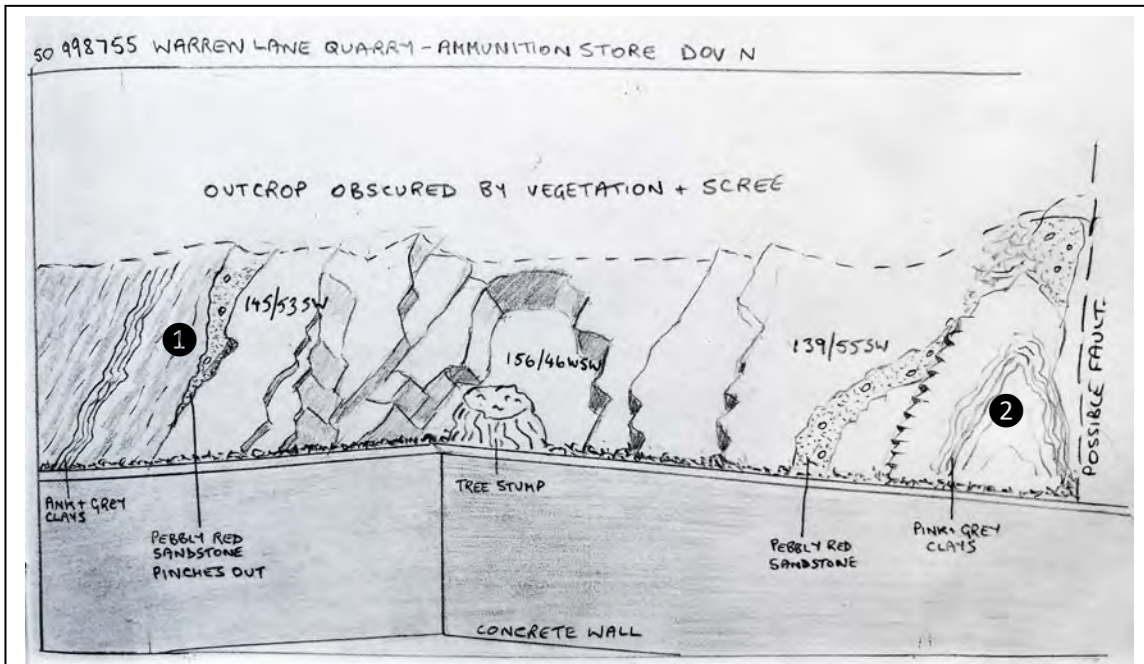 SO 998755 WARREN LANE QUARRY - AMMUNITION STORE DOV N
OUTCROP OBSCURED BY VEGETATION + SCREE
1
145/53SW
156/46WSW
139/55SW
2
POSSIBLE FAULT.
PINK + GREY
CLAYS
PEBBLY RED
SANDSTONE
PINCHES OUT
TREE STUMP
PEBBLY RED
SANDSTONE
PINK + GREY
CLAYS
CONCRETE WALL